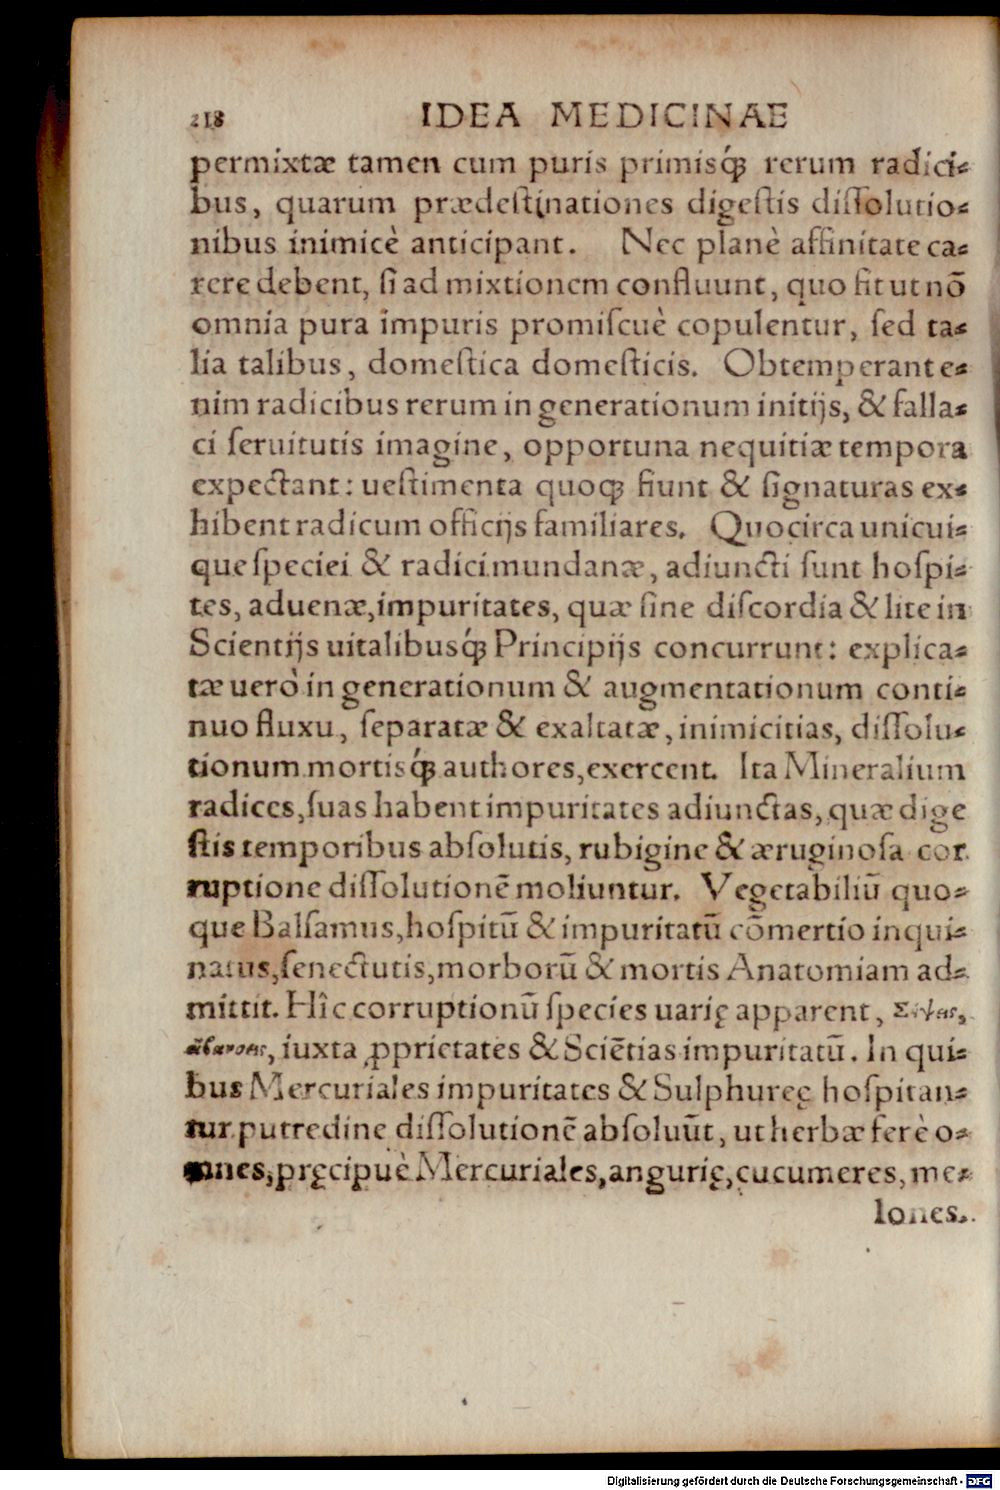 218 IDEA MEDICINAE
permixtæ tamen cum puris primisq́ꝫ rerum radici⸗
bus, quarum prædestinationes digestis dissolutio⸗
nibus inimicè anticipant. Nec planè affinitate ca⸗
rere debent, si ad mixtionem confluunt, quo fit ut nō
omnia pura impuris promiscuè copulentur, sed ta⸗
lia talibus, domestica domesticis. Obtemperant e⸗
nim radicibus rerum in generationum initijs, & falla⸗
ci seruitutis imagine, opportuna nequitiæ tempora
expectant: uestimenta quoqꝫ fiunt & signaturas ex⸗
hibent radicum officijs familiares. Quocirca unicui⸗
que speciei & radici mundanæ, adiuncti sunt hospi⸗
tes, aduenæ, impuritates, quæ sine discordia & lite in
Scientijs uitalibusq́ꝫ Principijs concurrunt: explica⸗
tæ uerò in generationum & augmentationum conti⸗
nuo fluxu, separatæ & exaltatæ, inimicitias, dissolu⸗
tionum mortisq́ꝫ authores, exercent. Ita Mineralium
radices, suas habent impuritates adiunctas, quæ dige
stis temporibus absolutis, rubigine & æruginosa cor
ruptione dissolutionē moliuntur. Vegetabiliū quo⸗
que Balsamus, hospitū & impuritatū cōmertio inqui⸗
natus, senectutis, morborū & mortis Anatomiam ad⸗
mittit. Hîc corruptionū species uarię apparent,
iuxta ꝓprietates & Sciētias impuritatū. In qui⸗
bus Mercuriales impuritates & Sulphureę hospitan⸗
tur putredine dissolutionē absoluūt, ut herbæ ferè o⸗
mnes, pręcipuè Mercuriales, angurię, cucumeres, me⸗
lones.
Digitalisierung gefördert durch die Deutsche Forschungsgemeinschaft - DFG